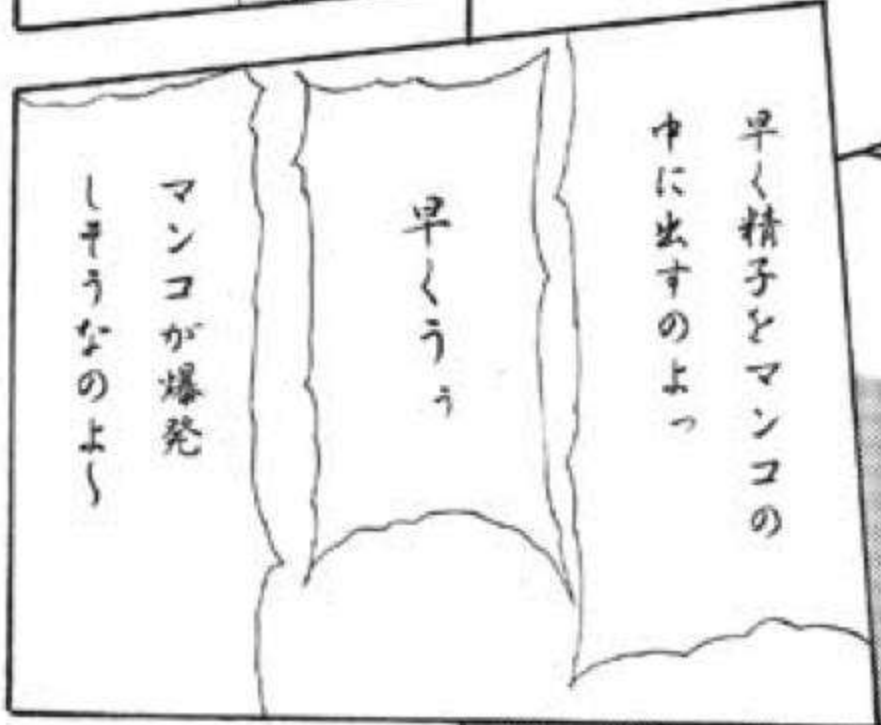 早く精子をマンコの
中に出すのよっ
早くうぅ
マンコが爆発
しそうなのよ～